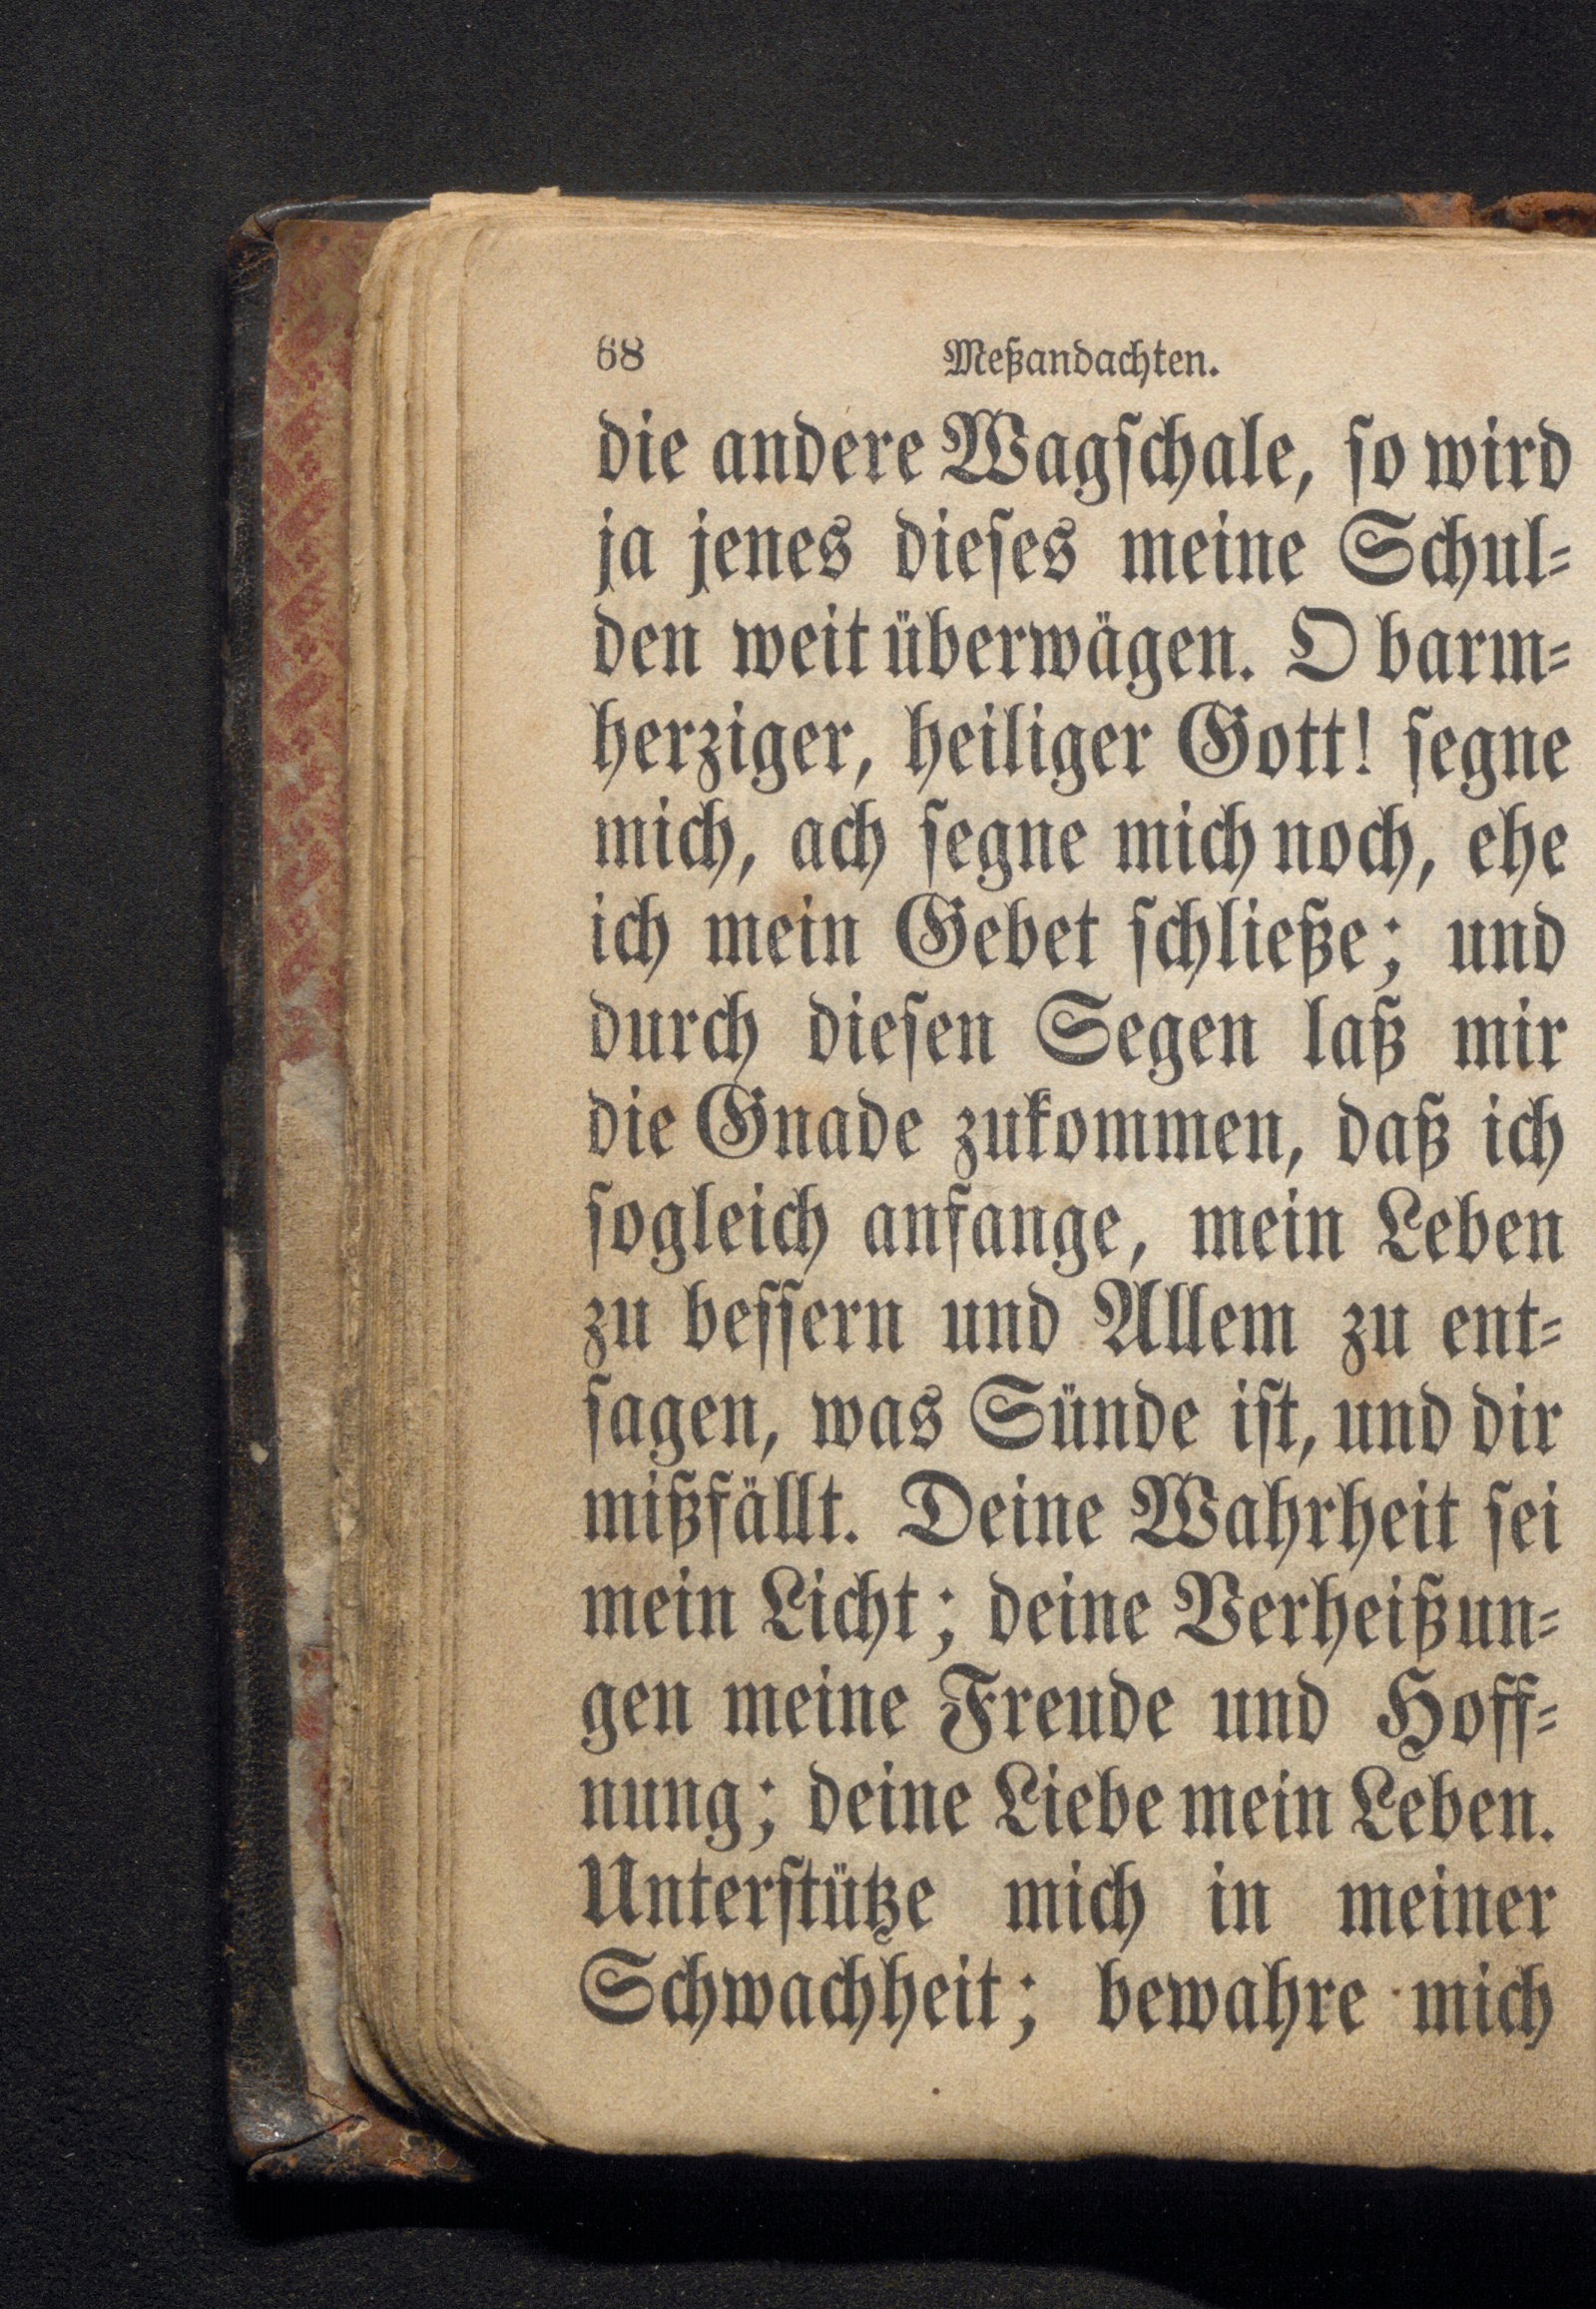 68 Meßandachten.
die andere Wagſchale, ſo wird
ja jenes dieſes meine Schul⸗
den weit überwägen. O barm⸗
herziger, heiliger Gott! ſegne
mich, ach ſegne mich noch, ehe
ich mein Gebet ſchließe; und
durch dieſen Segen laß mir
die Gnade zukommen, daß ich
ſogleich anfange, mein Leben
zu beſſern und Allem zu ent⸗
ſagen, was Sünde iſt, und dir
mißfällt. Deine Wahrheit ſei
mein Licht; deine Verheißun⸗
gen meine Freude und Hoff⸗
nung; deine Liebe mein Leben.
Unterſtütze mich in meiner
Schwachheit; bewahre mich